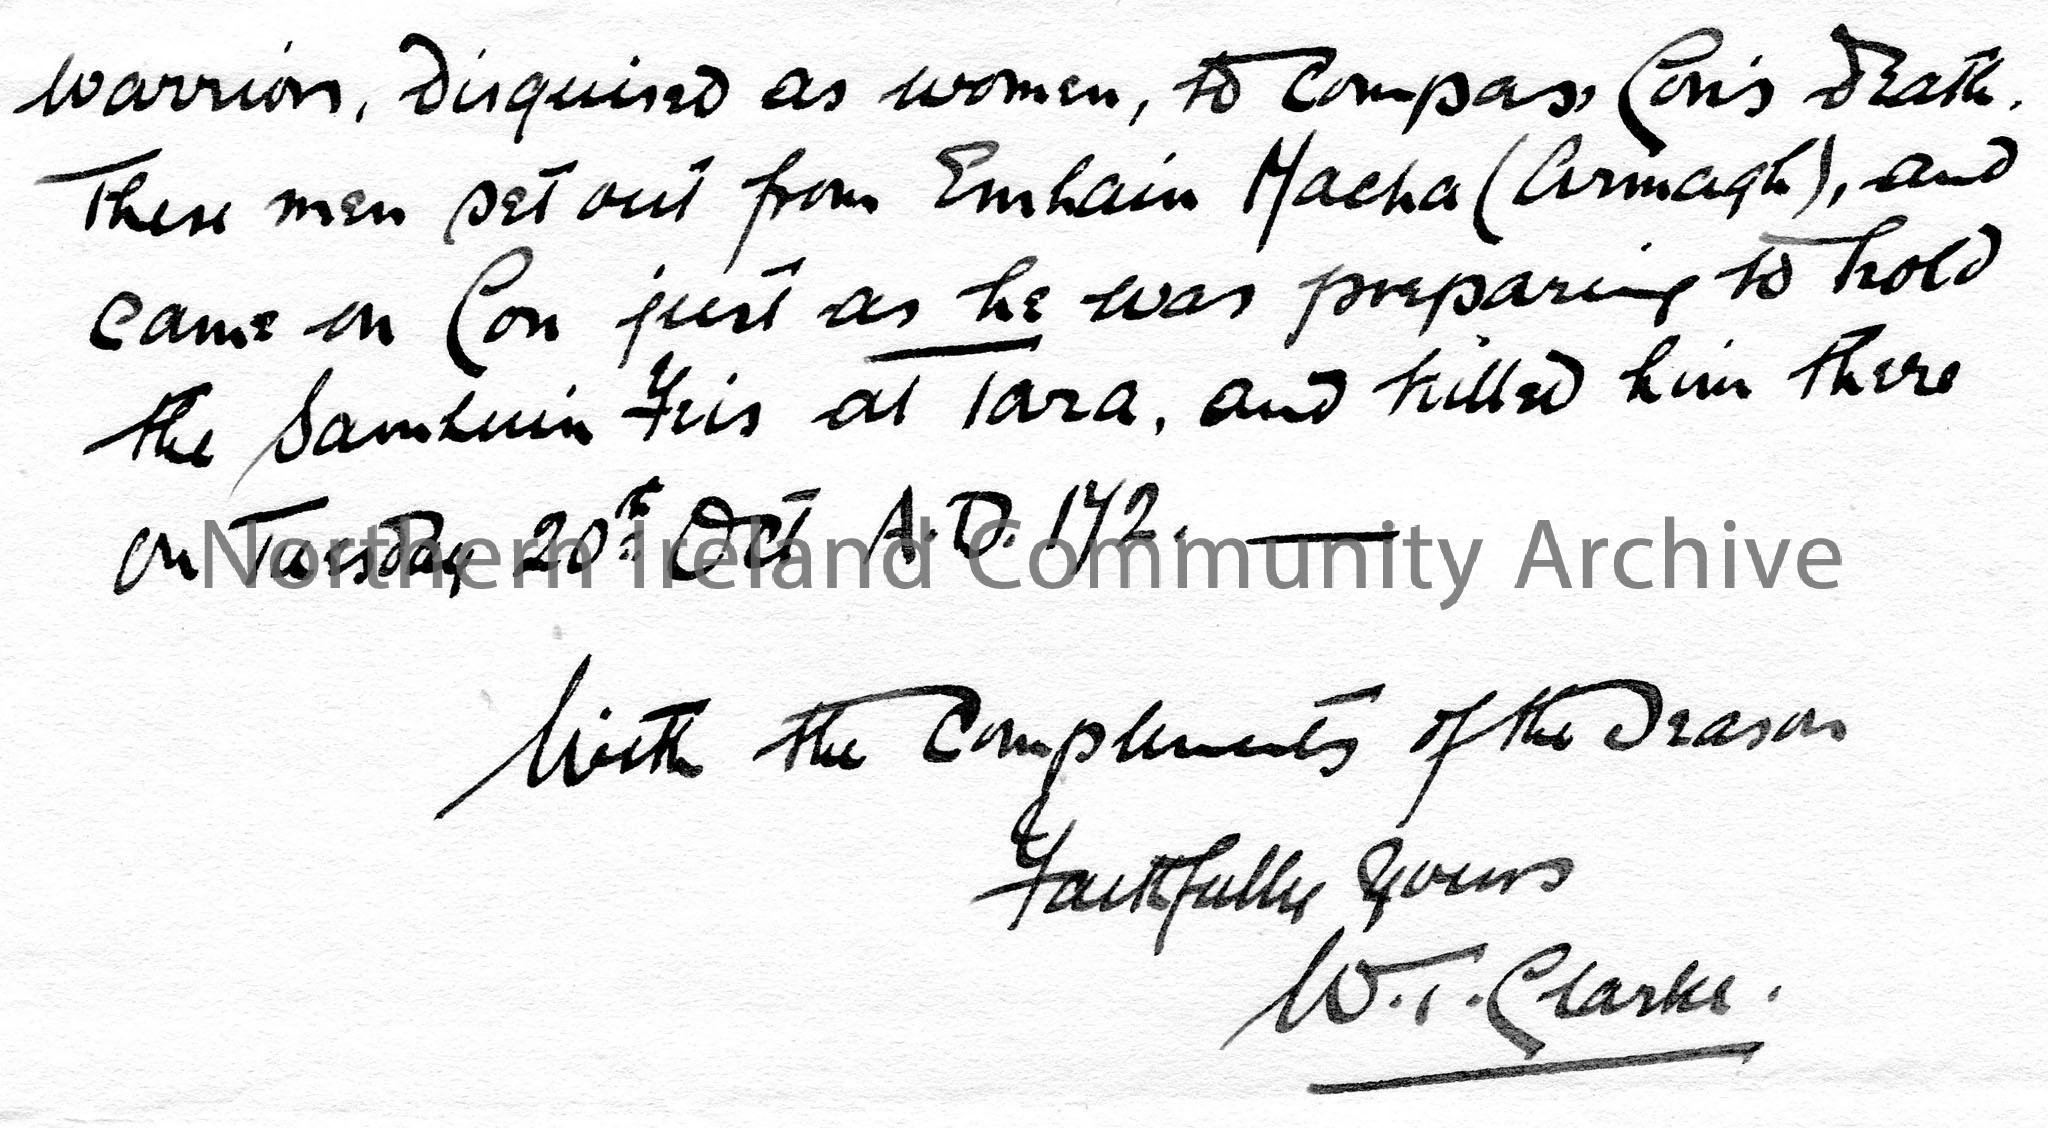 warriors, disguised as women, to compass Con's death.
These men set out from Emhain Macha (Armagh), and
came on Con just as he was preparing to hold
the Samhuin Feis at Tara, and killed him there
on Tuesday 20th Oct A.D. 172. —
Northern Ireland Community Archive
With the Compliments of the Season
Faithfully Yours
W. T. Clarke.